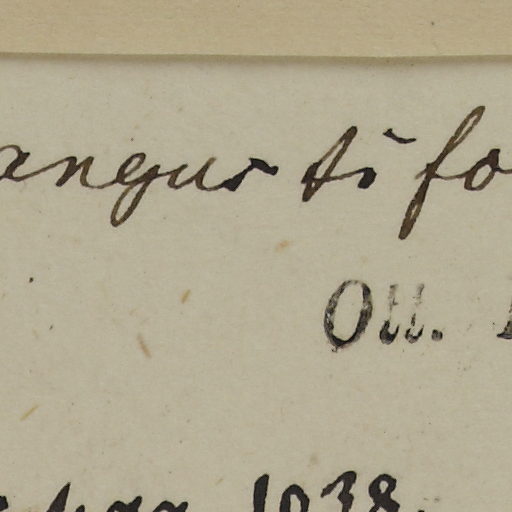 angusti fo
Ott.
1938.